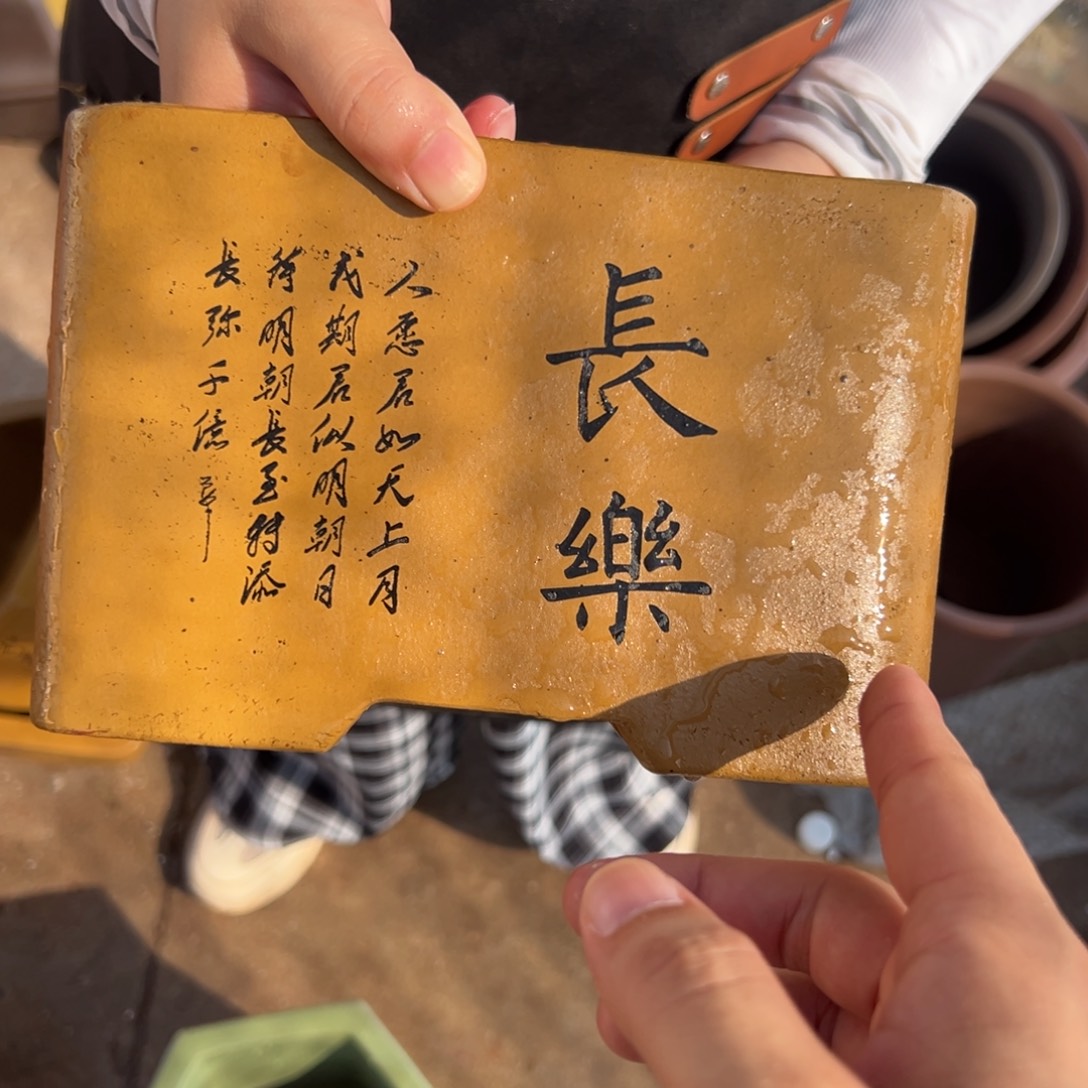 長樂
人愿君如天上月
我期君似明朝日
待明朝長至转添
長弥千億